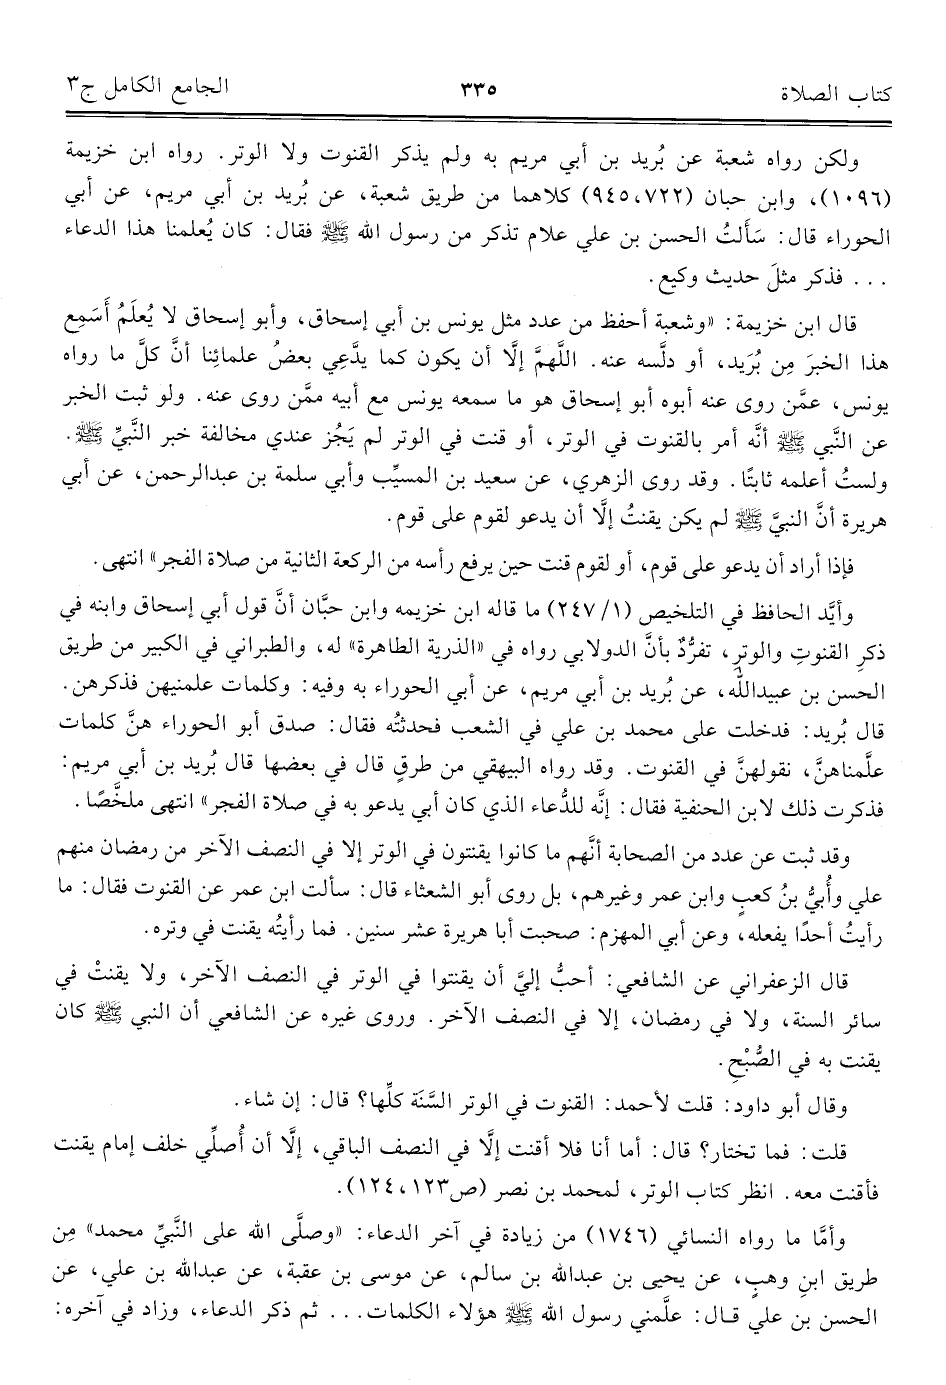 كتاب الصلاة ٣٣٥ الجامع الكامل ج٣
ولكن رواه شعبة عن بُريد بن أبي مريم به ولم يذكر القنوت ولا الوتر. رواه ابن خزيمة
(١٠٩٦)، وابن حبان (٧٢٢، ٩٤٥) كلاهما من طريق شعبة، عن بُريد بن أبي مريم، عن أبي
الحوراء قال: سَأَلتُ الحسن بن علي علام تذكر من رسول الله ﷺ فقال: كان يُعلمنا هذا الدعاء
... فذكر مثلَ حديث وكيع.
قال ابن خزيمة: «وشعبة أحفظ من عدد مثل يونس بن أبي إسحاق، وأبو إسحاق لا يُعلَمُ أَسَمِع
هذا الخبرَ مِن بُرَيد، أو دلَّسه عنه. اللَّهمَّ إلَّا أن يكون كما يدَّعِي بعضُ علمائِنا أنَّ كلَّ ما رواه
يونس، عمَّن روى عنه أبوه أبو إسحاق هو ما سمعه يونس مع أبيه ممَّن روى عنه. ولو ثبت الخبر
عن النَّبي ﷺ أنَّه أمر بالقنوت في الوتر، أو قنت في الوتر لم يَجُز عندي مخالفة خبر النَّبيِّ ﷺ.
ولستُ أعلمه ثابتًا. وقد روى الزهري، عن سعيد بن المسيِّب وأبي سلمة بن عبدالرحمن، عن أبي
هريرة أنَّ النبيَّ ﷺ لم يكن يقنتُ إلَّا أن يدعو لقوم على قوم.
فإذا أراد أن يدعو على قوم، أو لقوم قنت حين يرفع رأسه من الركعة الثانية من صلاة الفجر» انتهى.
وأيَّد الحافظ في التلخيص (١/ ٢٤٧) ما قاله ابن خزيمه وابن حبَّان أنَّ قول أبي إسحاق وابنه في
ذكرِ القنوتِ والوترِ، تفرُّدٌ بأنَّ الدولابي رواه في «الذرية الطاهرة» له، والطبراني في الكبير من طريق
الحسن بن عبيدالله، عن بُريد بن أبي مريم، عن أبي الحوراء به وفيه: وكلمات علمنيهن فذكرهن.
قال بُريد: فدخلت على محمد بن علي في الشعب فحدثتُه فقال: صدق أبو الحوراء هنَّ كلمات
علَّمناهنَّ، نقولهنَّ في القنوت. وقد رواه البيهقي من طرقٍ قال في بعضها قال بُريد بن أبي مريم:
فذكرت ذلك لابن الحنفية فقال: إنَّه للدُّعاء الذي كان أبي يدعو به في صلاة الفجر» انتهى ملخَّصًا.
وقد ثبت عن عدد من الصحابة أنَّهم ما كانوا يقنتون في الوتر إلا في النصف الآخر من رمضان منهم
علي وأُبيُّ بنُ كعبٍ وابن عمر وغيرهم، بل روى أبو الشعثاء قال: سألت ابن عمر عن القنوت فقال: ما
رأيتُ أحدًا يفعله، وعن أبي المهزم: صحبت أبا هريرة عشر سنين. فما رأيتُه يقنت في وتره.
قال الزعفراني عن الشافعي: أحبُّ إليَّ أن يقنتوا في الوتر في النصف الآخر، ولا يقنتْ في
سائر السنة، ولا في رمضان، إلا في النصف الآخر. وروى غيره عن الشافعي أن النبي ﷺ كان
يقنت به في الصُّبْحِ.
وقال أبو داود: قلت لأحمد: القنوت في الوتر السَّنَة كلِّها؟ قال: إن شاء.
قلت: فما تختار؟ قال: أما أنا فلا أقنت إلَّا في النصف الباقي، إلَّا أن أُصلِّي خلف إمام يقنت
فأقنت معه. انظر كتاب الوتر، لمحمد بن نصر (ص١٢٣، ١٢٤).
وأمَّا ما رواه النسائي (١٧٤٦) من زيادة في آخر الدعاء: «وصلَّى الله على النَّبيِّ محمد» مِن
طريق ابنِ وهبٍ، عن يحيى بن عبدالله بن سالم، عن موسى بن عقبة، عن عبدالله بن علي، عن
الحسن بن علي قال: علَّمني رسول الله ﷺ هؤلاء الكلمات... ثم ذكر الدعاء، وزاد في آخره: